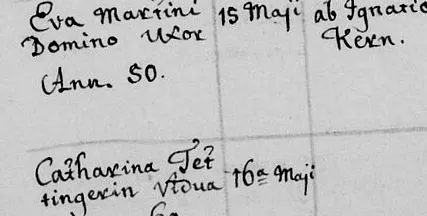 Eva Martini 15 Maji ab Ignatio
Domino Uxor Kern.
Ann. 50.
Catharina Tet
tingerin Vidua 16a Maji